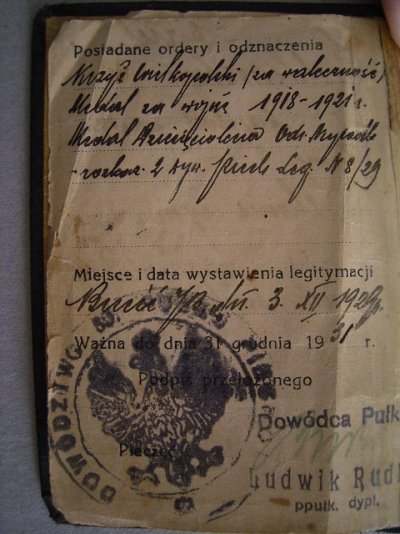 Posiadane ordery i odznaczenia
Krzyż Wielkopolski (za waleczność)
Medal za wojnę 1918-1921 r.
Medal Dziesięciolecia Ods. Niepodl.
- rozkaz. 2 Dyw. Piech Leg. N 8/29
Miejsce i data wystawienia legitymacji
dn. 3. XII 1929 r.
Ważna do dnia 31 grudnia 1931 r.
Podpis przełożonego
Pieczęć
DOWÓDZTWO
Dowódca Pułk
Ludwik Rud
ppułk. dypl.